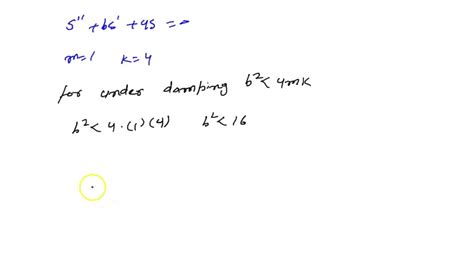 s'' + bs' + 4s = 0
m=1 k=4
for under damping b² < 4mk
b² < 4·(1)(4) b² < 16